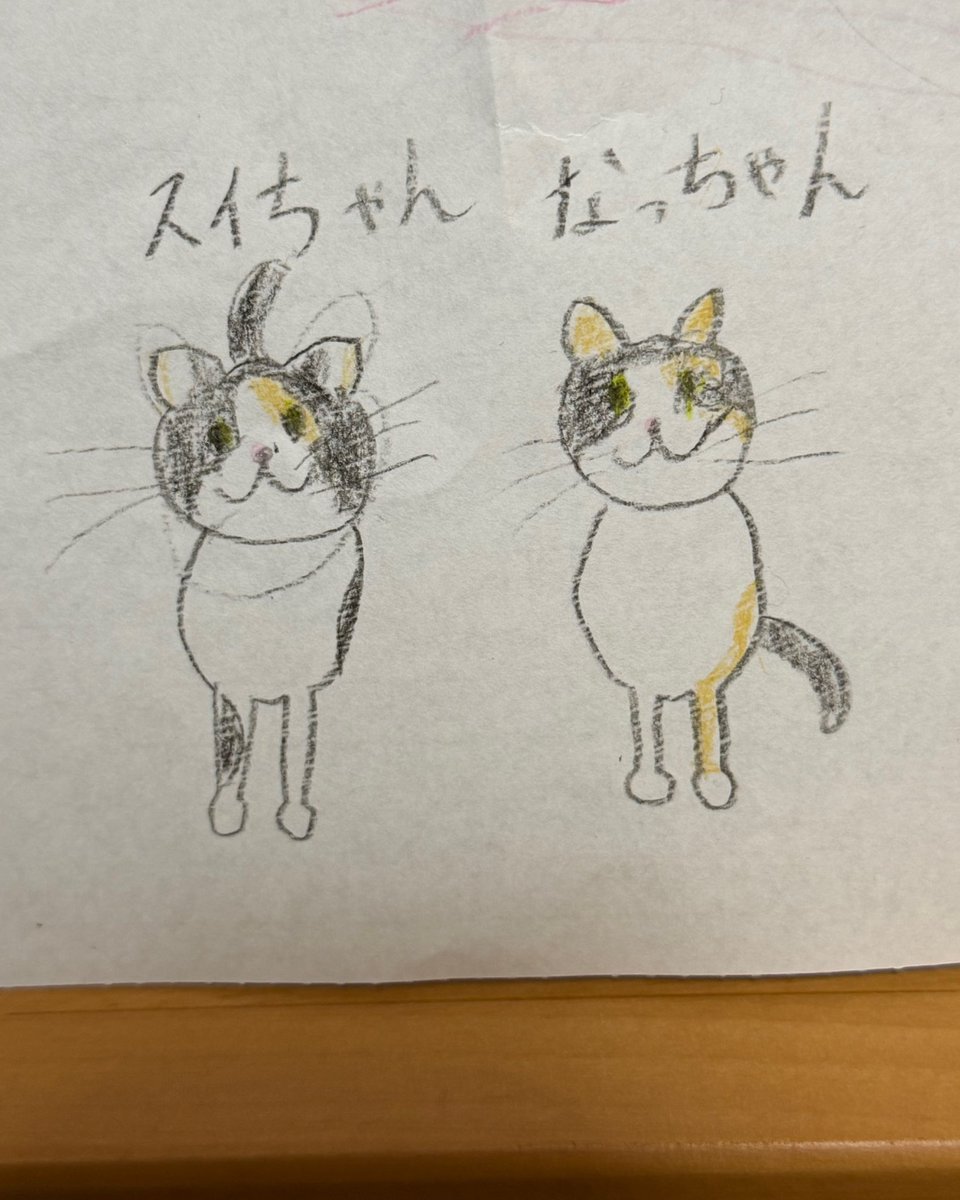 スイちゃん なっちゃん